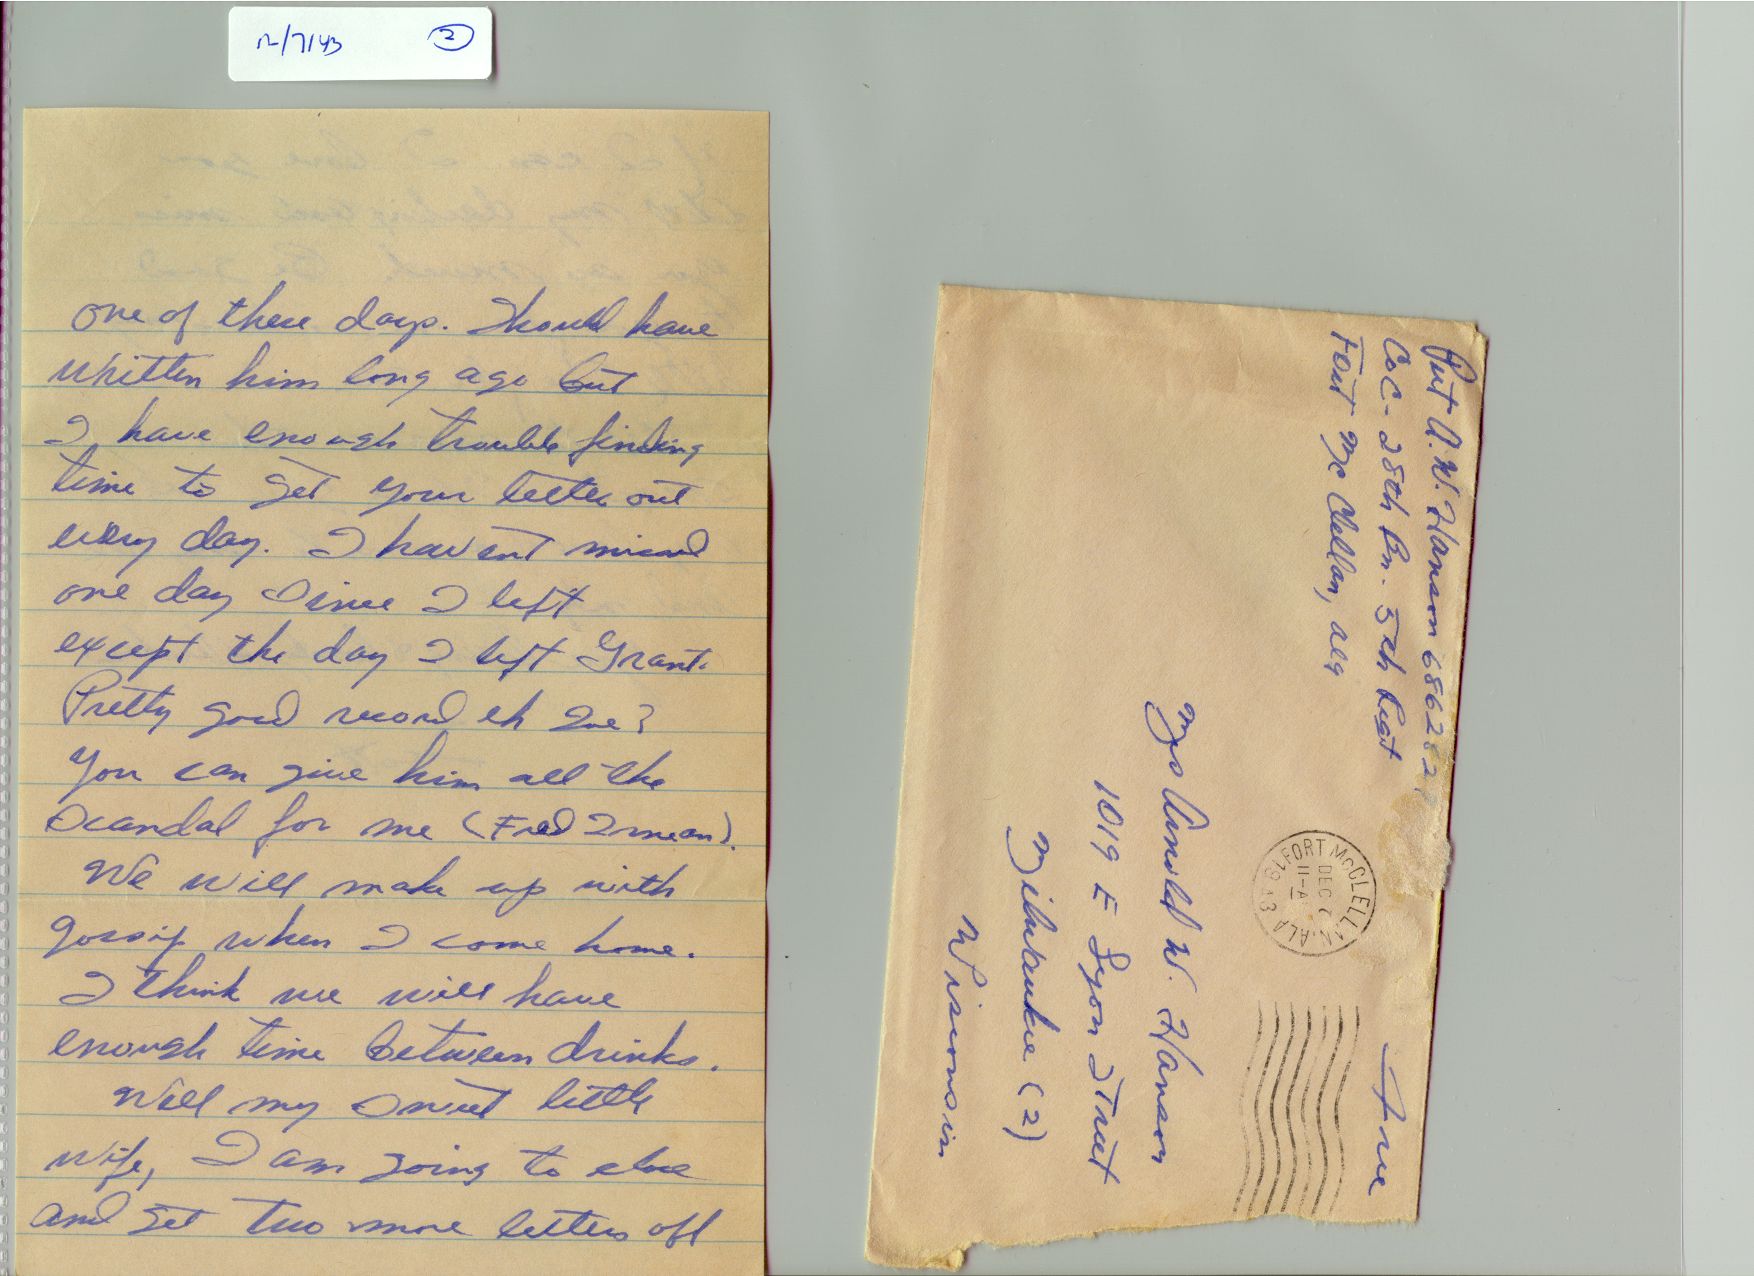 12/7/43 2
one of these days. Should have
written him long ago but
I have enough trouble finding
time to get your letter out
every day. I havent missed
one day since I left
except the day I left Grant.
Pretty good record eh Sue?
You can give him all the
scandal for me (Fred I mean).
We will make up with
gossip when I come home.
I think we will have
enough time between drinks.
Well my sweet little
wife, I am going to close
and get two more letters off
Pvt A. W. Hanson 686
Co C - 28th Bn. 5th Regt
Fort Mc Clellan, Ala
Free
FORT McCLELLAN, ALA
DEC
11-A
Mrs Arnold W. Hanson
1019 E Lyon Street
Milwaukee (2)
Wisconsin